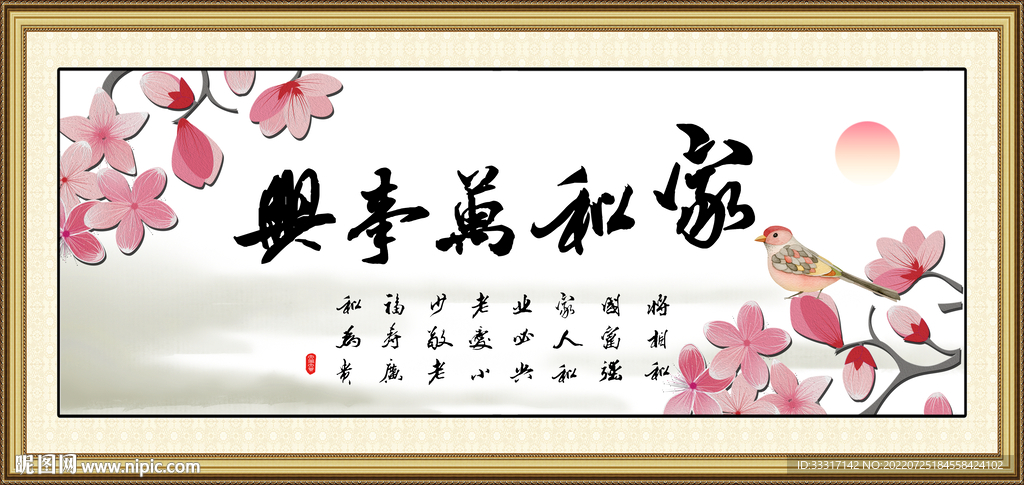 家和萬事興
將相和
國富強
家人和
业必興
老愛小
少敬老
福壽廣
和為貴
昵图网 www.nipic.com
ID:33317142 NO:20220725184558424102